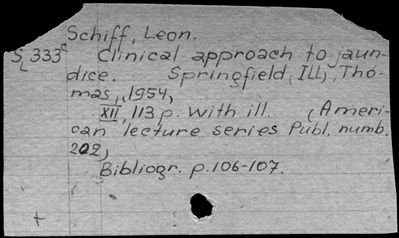 Schiff, Leon.
S 333c Clinical approach to jaun-
dice. Springfield, Ill., Tho-
mas, 1954,
XII, 113 p. with ill. (Ameri-
can lecture series Publ. numb.
202)
Bibliogr. p. 106-107.